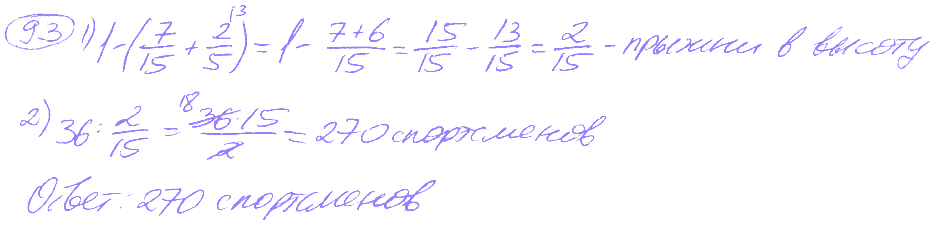 93 1) 1 - (7/15 + 2/5 ⁽³) = 1 - (7+6)/15 = 15/15 - 13/15 = 2/15 - прыжки в высоту
2) 36 : 2/15 = (¹⁸36·15)/2 = 270 спортсменов
Ответ: 270 спортсменов